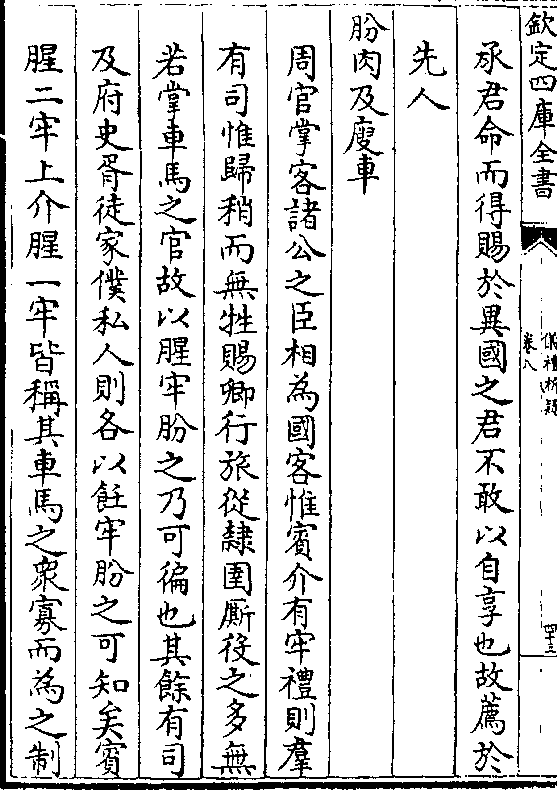 欽定四庫全書
儀禮析疑
卷八
四十三
承君命而得賜於異國之君不敢以自享也故薦於
先人
肦肉及廋車
周官掌客諸公之臣相為國客惟賓介有牢禮則羣
有司惟歸稍而無牲賜卿行旅從隸圉厮役之多無
若掌車馬之官故以腥牢肦之乃可徧也其餘有司
及府史胥徒家僕私人則各以飪牢肦之可知矣賓
腥二牢上介腥一牢皆稱其車馬之衆寡而為之制